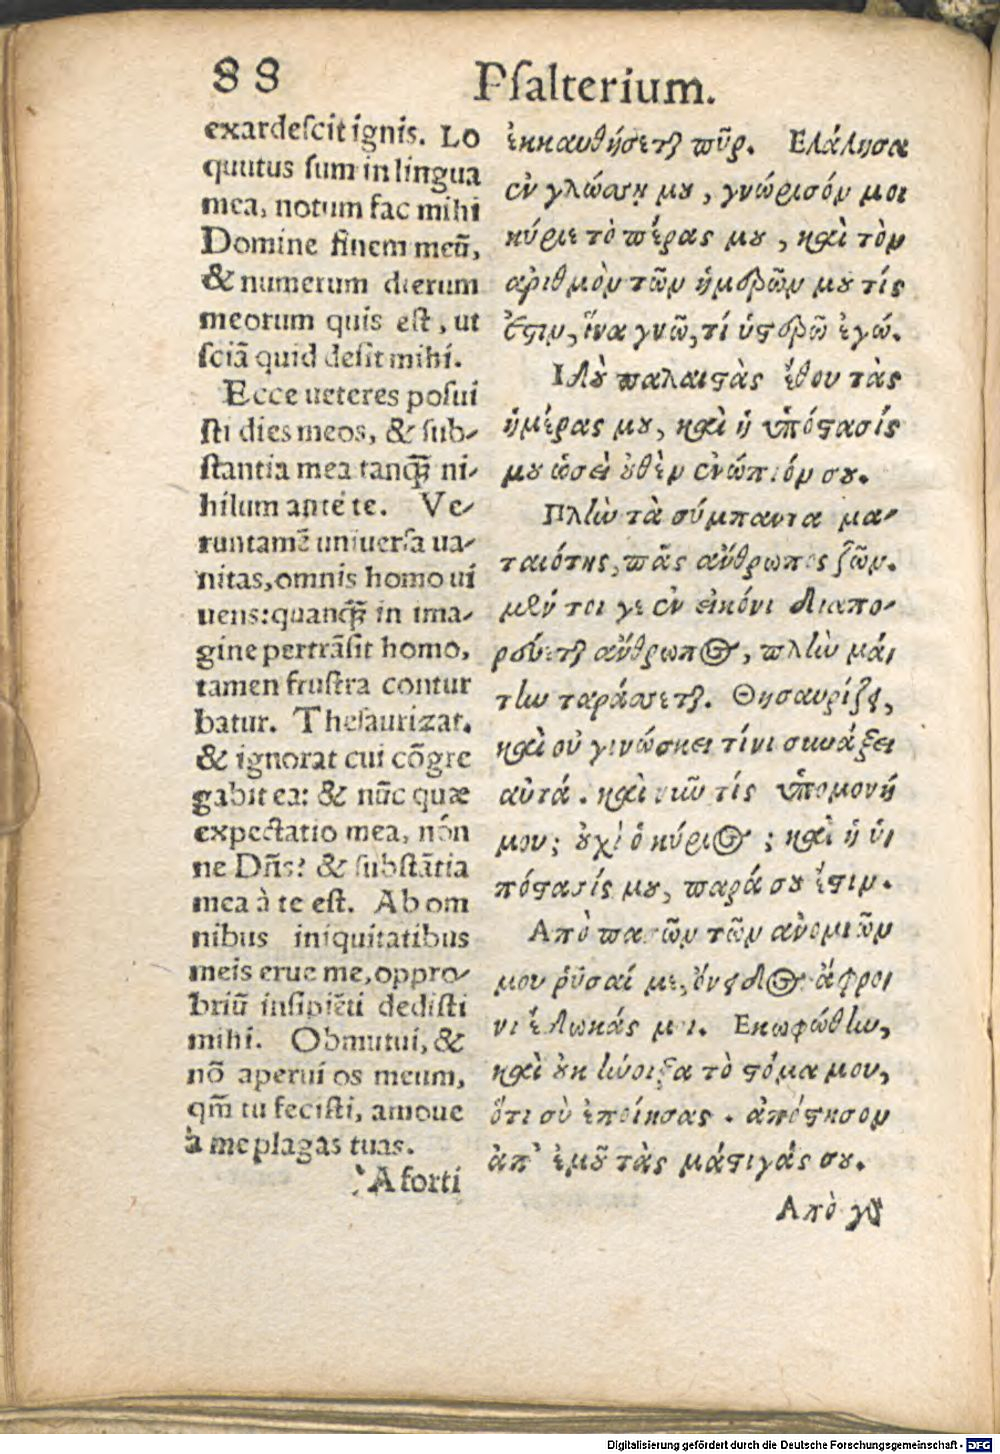 88 Psalterium.
exardescit ignis. Lo
quutus sum in lingua
mea, notum fac mihi
Domine finem meũ,
& numerum dierum
meorum quis est, ut
sciã quid desit mihi.
Ecce ueteres posui
sti dies meos, & sub-
stantia mea tanq̃ȝ ni-
hilum ante te. Ve-
runtamẽ uniuersa ua-
nitas, omnis homo ui
uens: quanq̃ȝ in ima-
gine pertrãsit homo,
tamen frustra contur
batur. Thesaurizat.
& ignorat cui cõgre
gabit ea: & nũc quæ
expectatio mea, nón
ne Dñs? & substãtia
mea à te est. Ab om
nibus iniquitatibus
meis erue me, oppro-
briũ insipiẽti dedisti
mihi. Obmutui, &
nõ aperui os meum,
qm̃ tu fecisti, amoue
à me plagas tuas.
A forti
ἐκκαυθήσεται πῦρ. Ελάλησα
ἐν γλώσσῃ μου, γνώρισόν μοι
κύριε τὸ πέρας μου, καὶ τὸν
ἀριθμὸν τῶν ἡμερῶν μου τίς
ἐστιν, ἵνα γνῶ, τί ὑστερῶ ἐγώ.
Ιδοὺ παλαιστὰς ἔθου τὰς
ἡμέρας μου, καὶ ἡ ὑπόστασίς
μου ὡσεὶ οὐθὲν ἐνώπιόν σου.
Πλὴν τὰ σύμπαντα μα-
ταιότης, πᾶς ἄνθρωπος ζῶν.
μέν τοι γε ἐν εἰκόνι διαπο-
ρεύεται ἄνθρωπος, πλὴν μά
την ταράσσεται. Θησαυρίζει,
καὶ οὐ γινώσκει τίνι συνάξει
αὐτά. καὶ νῦν τίς ὑπομονή
μου; οὐχὶ ὁ κύριος; καὶ ἡ ὑ
πόστασίς μου, παρά σου ἐστιν.
Απὸ πασῶν τῶν ἀνομιῶν
μου ῥῦσαί με, ὄνειδος ἄφρο
νι ἔδωκάς μοι. Εκωφώθην,
καὶ οὐκ ἤνοιξα τὸ στόμα μου,
ὅτι σὺ ἐποίησας. ἀπόστησον
ἀπ' ἐμοῦ τὰς μάστιγάς σου.
Απὸ γὰρ
Digitalisierung gefördert durch die Deutsche Forschungsgemeinschaft - DFG